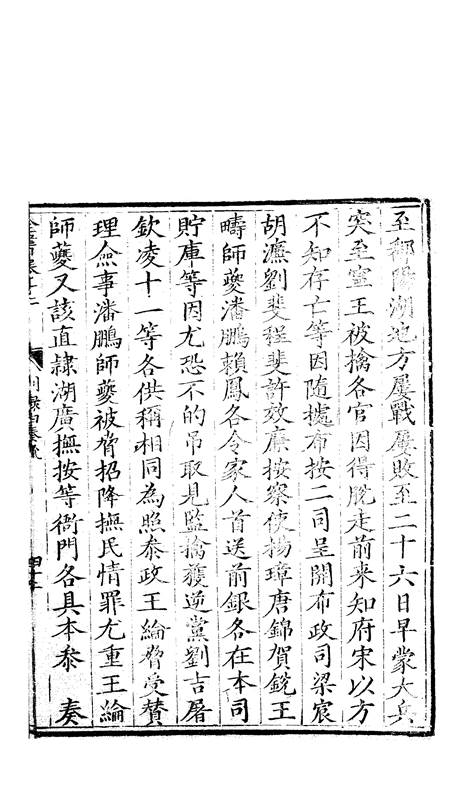 至鄱陽湖地方屢戰屢敗至二十六日早蒙大兵
突至寧王被擒各官因得脫走前来知府宋以方
不知存亡等因隨㨿布按二司呈開布政司梁宸
胡濂劉斐程斐許效廉按察使楊璋唐錦賀銳王
疇師夔潘鵬賴鳳各令家人首送前銀各在本司
貯庫等因尤恐不的吊取見監擒獲逆黨劉吉屠
欽凌十一等各供稱相同為照泰政王綸脅受賛
理僉事潘鵬師夔被脅招降撫民情罪尤重王綸
師夔又該直隷湖廣撫按等衙門各具本叅　奏